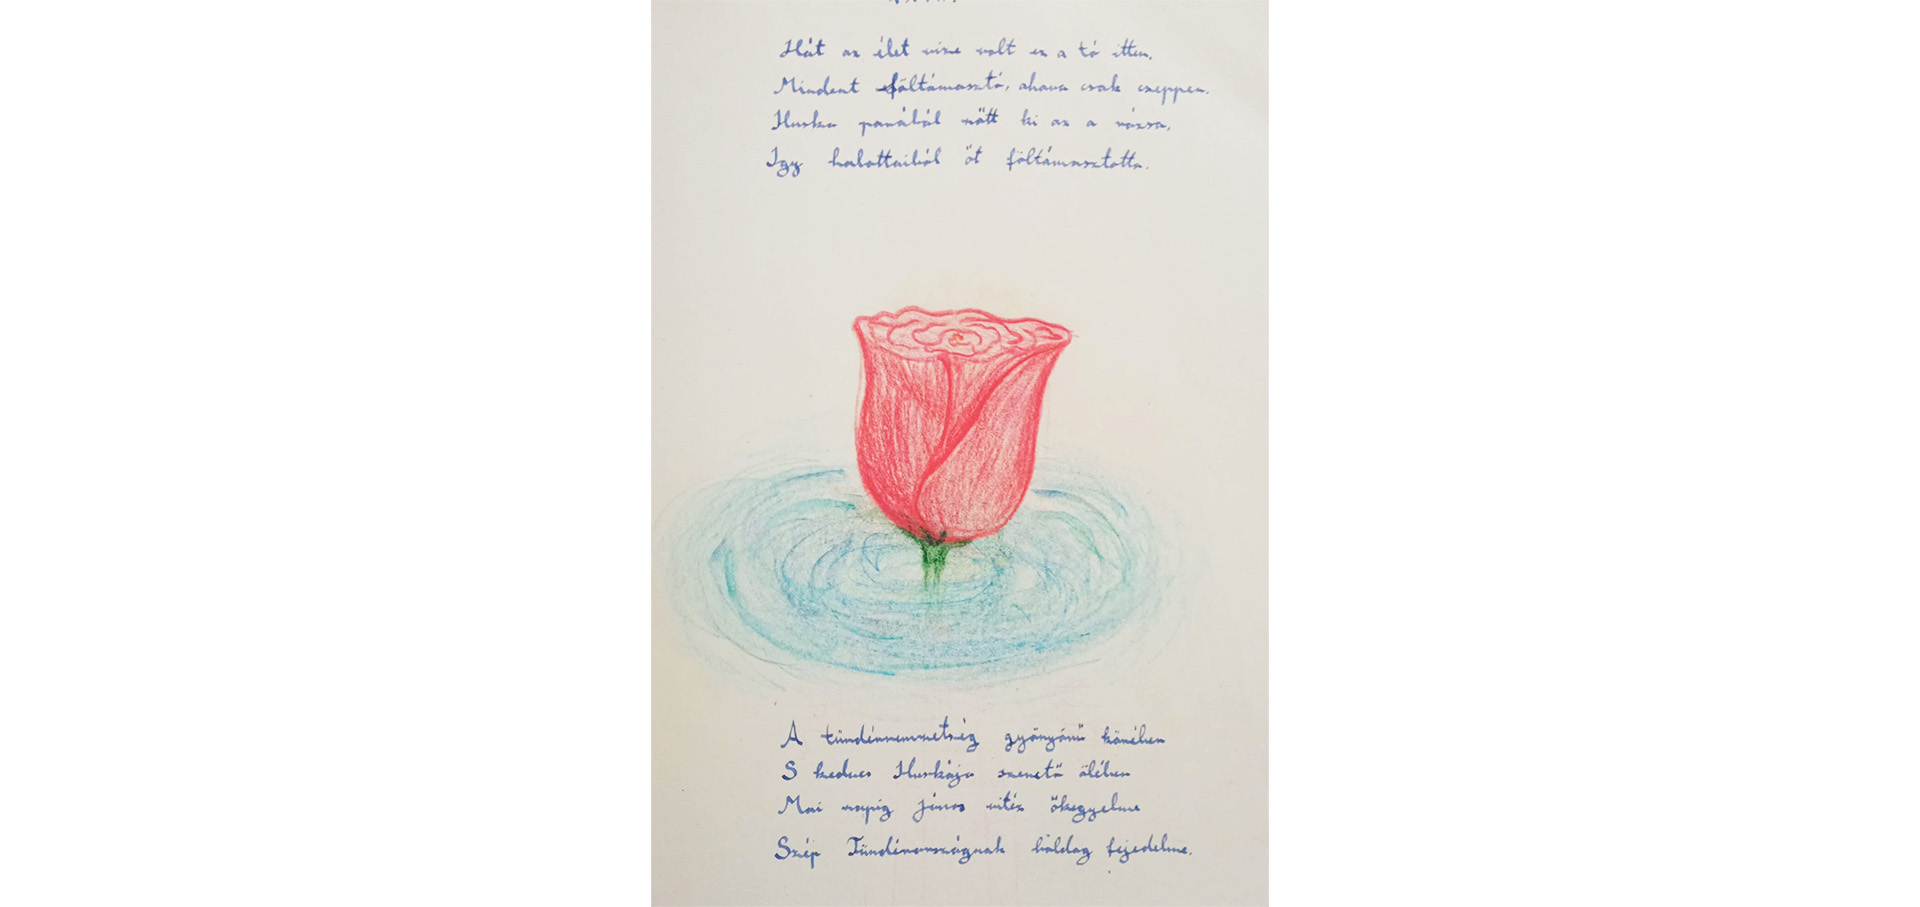 Hát az élet vize volt ez a tó itten,
Mindent föltámasztó, ahova csak cseppen.
Iluska porából nőtt ki az a rózsa,
Igy halottaiból őt föltámasztotta.
A tündérnemzetség gyönyörű körében
S kedves Iluskája szerető ölében
Mai napig János vitéz őkegyelme
Szép Tündérországnak boldog fejedelme.